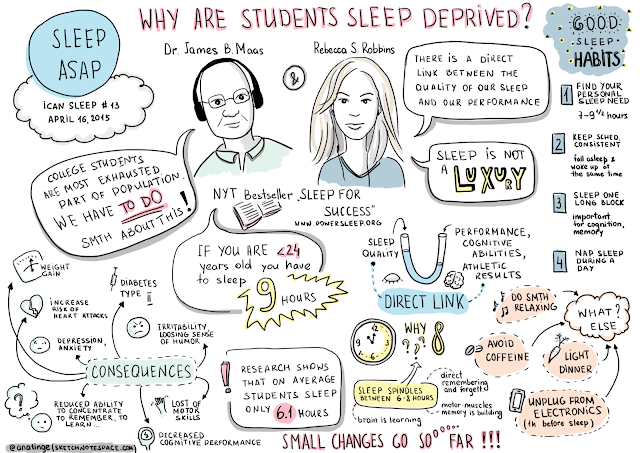 WHY ARE STUDENTS SLEEP DEPRIVED?
SLEEP
ASAP
iCAN SLEEP #13
APRIL 16, 2015
Dr. James B. Maas
&
Rebecca S. Robbins
COLLEGE STUDENTS
ARE MOST EXHAUSTED
PART OF POPULATION.
WE HAVE TO DO
SMTH ABOUT THIS!
THERE IS A DIRECT
LINK BETWEEN THE
QUALITY OF OUR SLEEP
AND OUR PERFORMANCE
SLEEP IS NOT
A LUXURY
NYT Bestseller „SLEEP FOR
SUCCESS"
WWW.POWERSLEEP.ORG
IF YOU ARE <24
years old you have
to sleep
9 HOURS
SLEEP
QUALITY
PERFORMANCE,
COGNITIVE
ABILITIES,
ATHLETIC
RESULTS
DIRECT LINK
GOOD
SLEEP
HABITS
1 FIND YOUR
PERSONAL
SLEEP NEED
7-9 1/2 hours
2 KEEP SCHED.
CONSISTENT
fall asleep &
wake up at
the same time
3 SLEEP ONE
LONG BLOCK
important
for cognition,
memory
4 NAP SLEEP
DURING A
DAY
WEIGHT
GAIN
DIABETES
TYPE II
INCREASE
RISK OF
HEART ATTACKS
IRRITABILITY,
LOOSING SENSE
OF HUMOR
DEPRESSION,
ANXIETY
CONSEQUENCES
?
REDUCED ABILITY
TO CONCENTRATE
TO REMEMBER, TO
LEARN ...
LOST OF
MOTOR
SKILLS
DECREASED
COGNITIVE PERFORMANCE
! RESEARCH SHOWS
THAT ON AVERAGE
STUDENTS SLEEP
ONLY 6.1 HOURS
WHY 8
???
SLEEP SPINDLES
BETWEEN 6-8 HOURS
direct
remembering
and forgett
motor-muscles
memory is building
brain is learning
WHAT
ELSE?
DO SMTH
RELAXING
AVOID
COFFEINE
LIGHT
DINNER
UNPLUG FROM
ELECTRONICS
(1h before sleep)
SMALL CHANGES GO SOOOOOO FAR !!!
@anatinge(SKETCHNOTESPACE.COM)